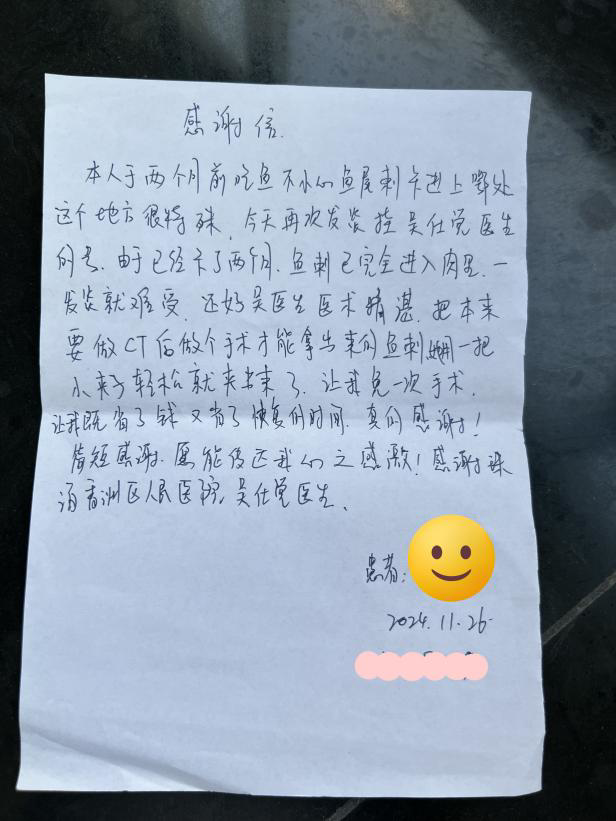 感谢信.
本人于两个月前吃鱼不小心鱼尾刺卡进上腭处
这个地方很特殊,今天再次发炎挂吴仕觉医生
的号.由于已经卡了两个月.鱼刺已完全进入肉里.一
发炎就难受.还好吴医生医术精湛.把本来
要做CT后做个手术才能拿出来的鱼刺用一把
小夹子轻松就夹出来了.让我免一次手术.
让我既省了钱又省了恢复的时间.真的感谢!
简短感谢.愿能传达我们之感激!感谢珠
海香洲区人民医院吴仕觉医生.
患者:
2024.11.26